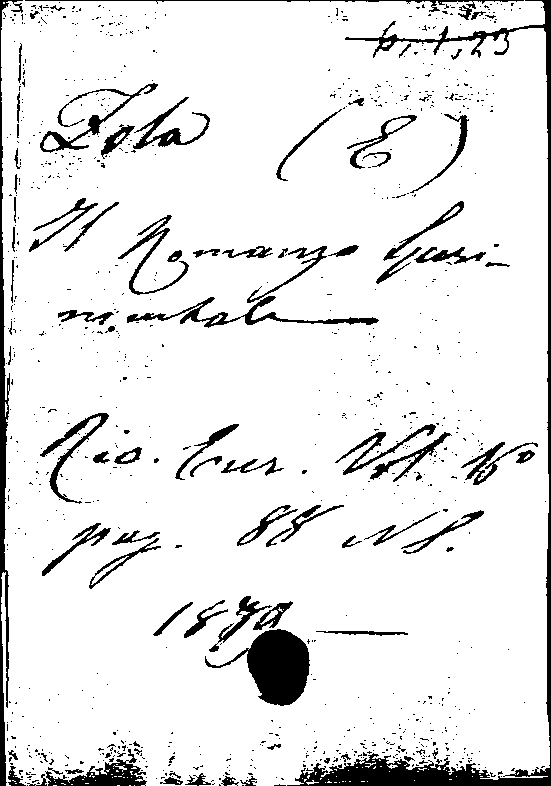 Zola (E)
Il Romanzo Speri-
mentale
Riv. Eur. Vol. 16º
pag. 88 NS.
1879